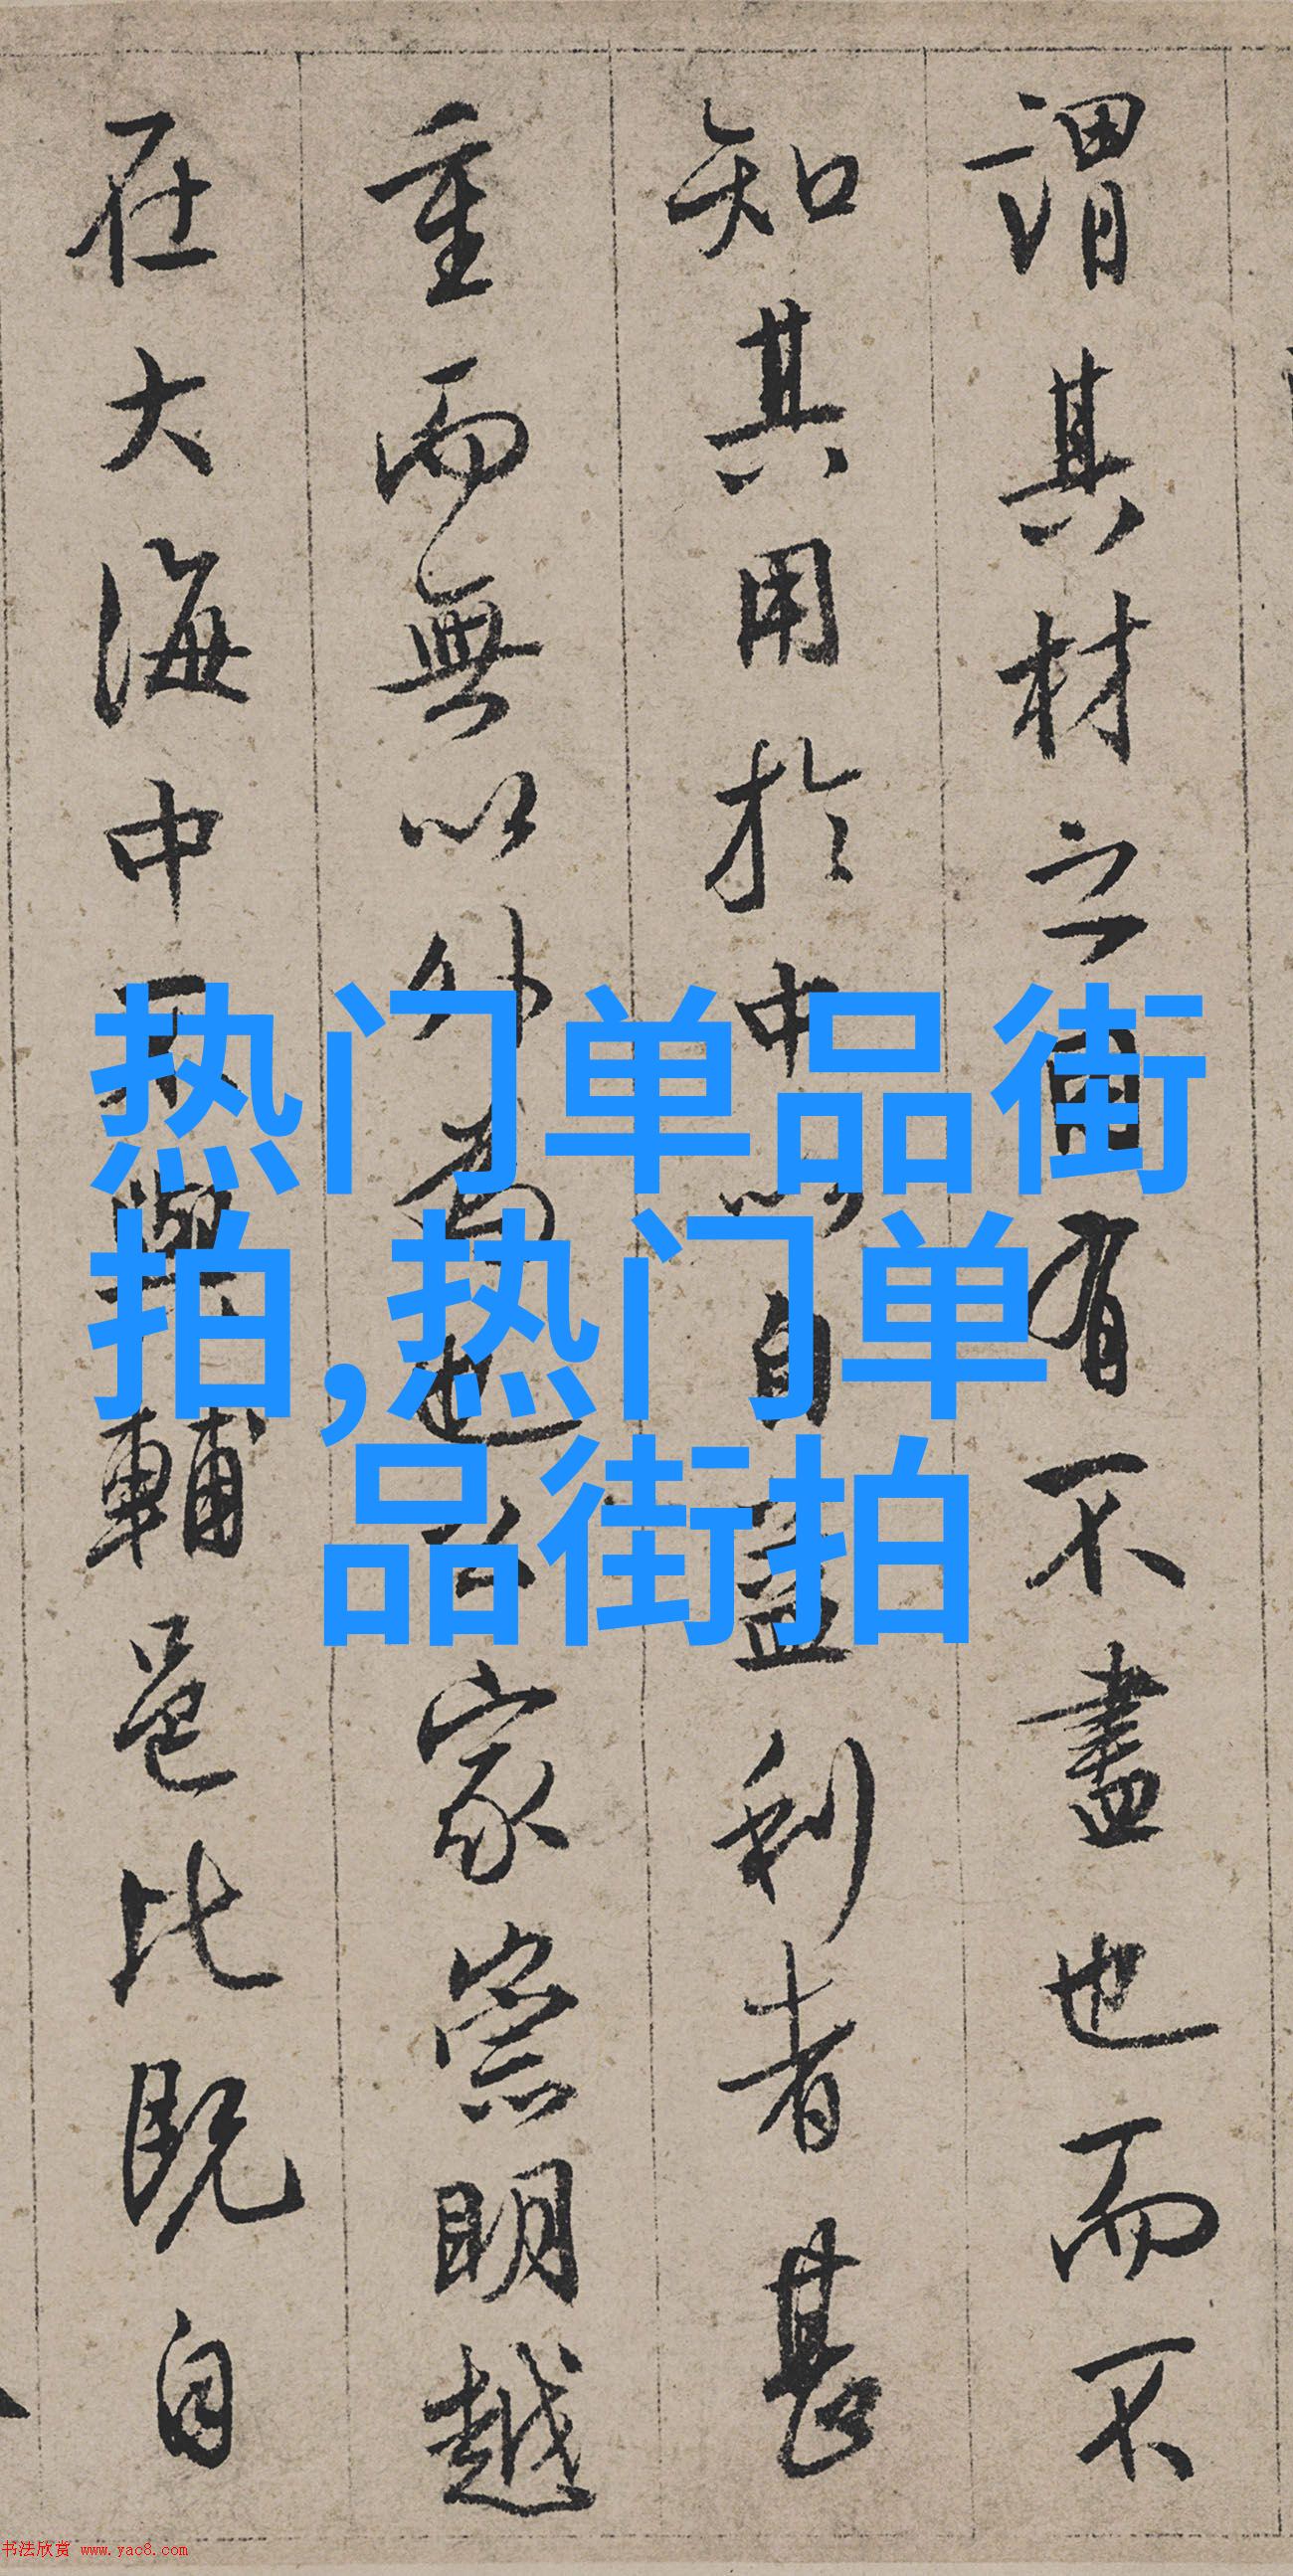 謂其材之用有不盡也而不
知其用於中以自益利者甚
重而無以外為也公家崇明越
在大海中不與輔邑比既自
热门单品街
拍,热门单
品街拍
书法欣赏 www.yac8.com